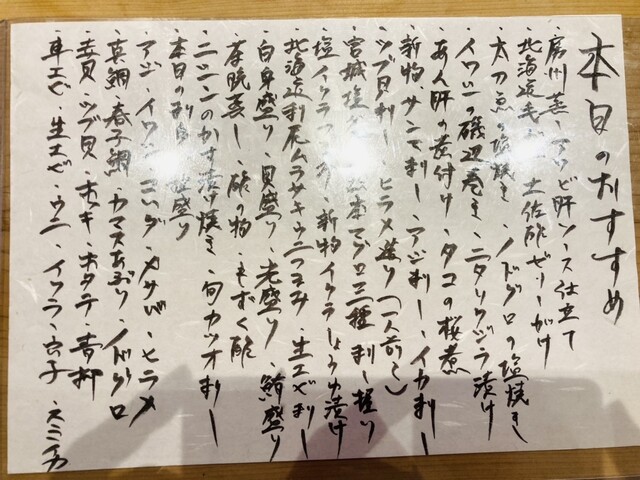 本日のおすすめ
・房州蒸しアワビ肝ソース仕立て
・北海道毛ガニ 土佐酢ゼリーがけ
・太刀魚の塩焼き ・ノドグロの塩焼き
・イワシの磯辺巻き ・ニタリクジラ漬け
・あん肝の煮付け ・タコの桜煮
・新物サンマ刺し ・アジ刺し ・イカ刺し
・ツブ貝刺し ・ヒラメ造り（一人前〜）
・宮城塩釜 本マグロ三種 刺し 握り
・塩イクラ ・新物イクラしょうゆ漬け
・北海道利尻ムラサキウニつまみ ・生エビ刺し
・白身盛り ・貝盛り ・光盛り ・鮪盛り
・茶碗蒸し ・酢の物 ・もずく酢
・ニシンのかす漬け焼き ・旬カツオ刺し
・本日の刺身 盛り
・アジ ・イワシ ・コハダ ・〆サバ ・ヒラメ
・真鯛 ・春子鯛 ・カマスあぶり ・ノドグロ
・赤貝 ・ツブ貝 ・ホッキ ・ホタテ ・青柳
・車エビ ・生エビ ・ウニ ・イクラ ・穴子 ・スミイカ